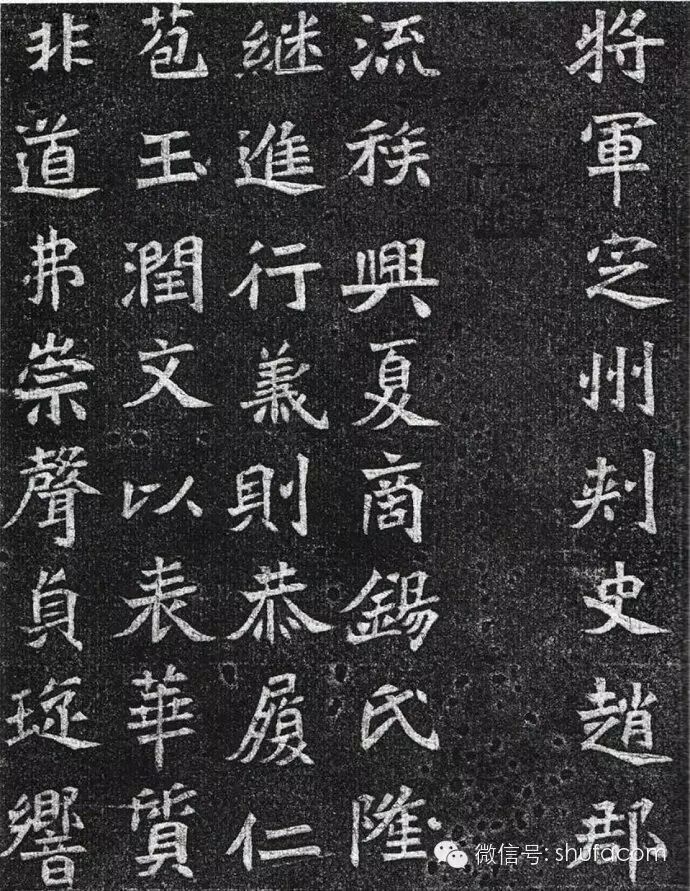 將軍定州刺史趙郡
流族興夏商錫氏隆
継進行義則恭履仁
苞玉潤文以表華質
非道弗崇聲貞珎響
微信号: shufacom